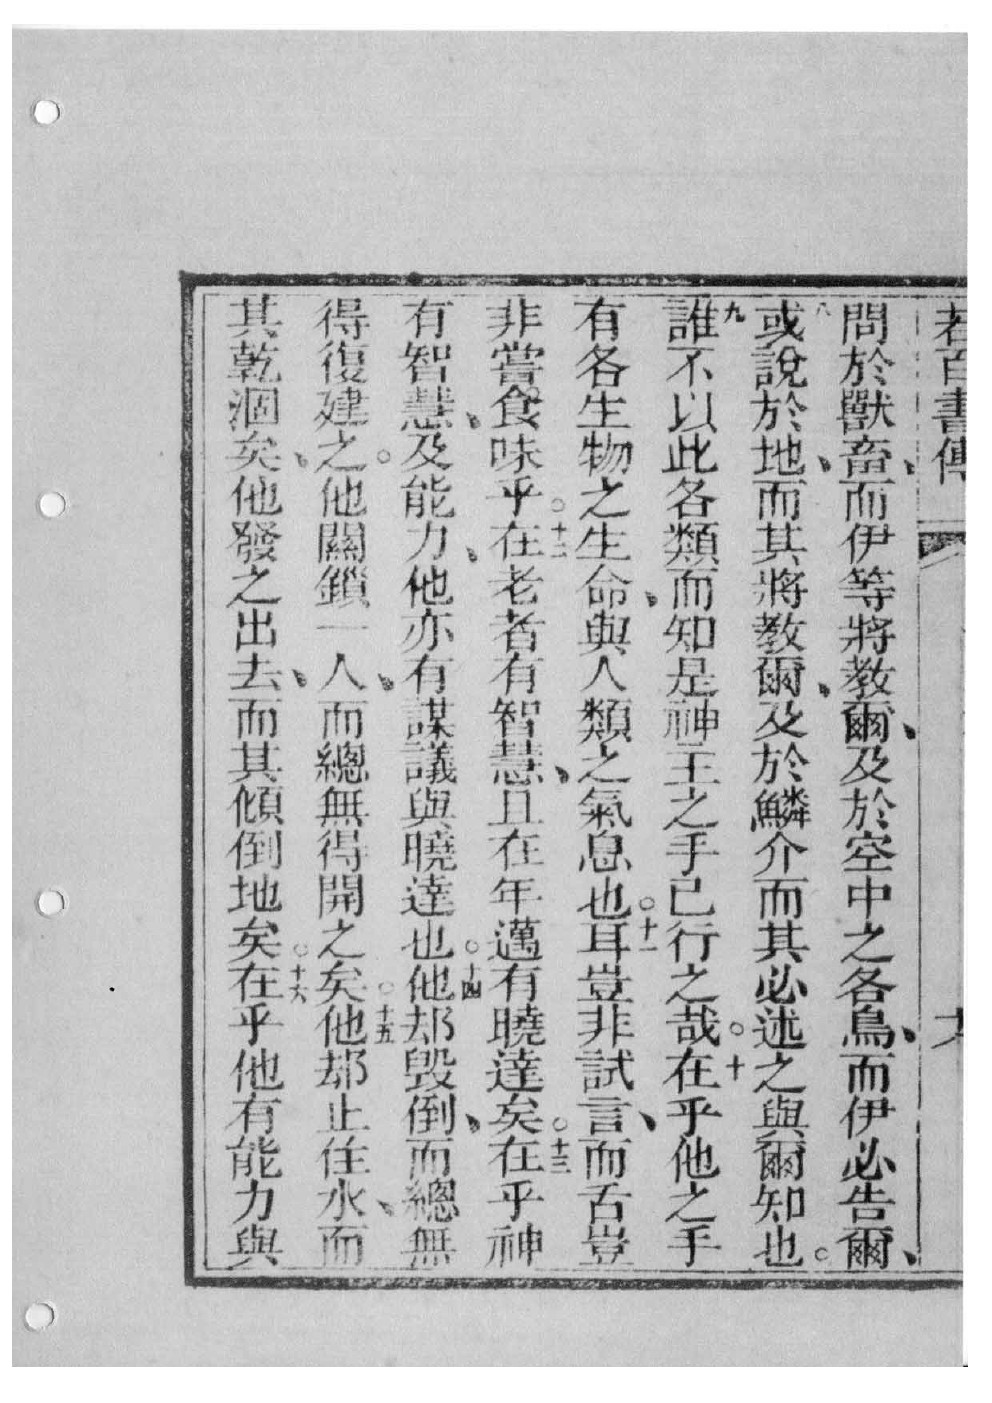 若百書傳
問於獸畜、而伊等將教爾、及於空中之各鳥、而伊必告爾、
八或說於地、而其將教爾、及於鱗介而其必述之與爾知也。
九誰不以此各類而知是神主之手已行之哉。十在乎他之手
有各生物之生命、與人類之氣息也。十一耳豈非試言、而舌豈
非嘗食味乎。十二在老者有智慧、且在年邁有曉達矣。十三在乎神
有智慧、及能力、他亦有謀議與曉達也。十四他却毀倒、而總無
得復建之。他關鎖一人、而總無得開之矣。十五他却止住水、而
其乾涸矣、他發之出去、而其傾倒地矣。十六在乎他有能力與